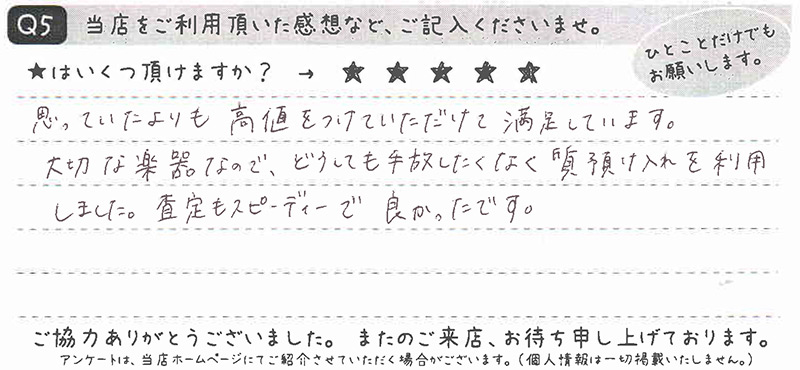 Q5 当店をご利用頂いた感想など、ご記入くださいませ。
ひとことだけでも
お願いします。
★はいくつ頂けますか? → ★ ★ ★ ★ ★
思っていたよりも 高値をつけていただけて 満足しています。
大切な楽器なので、どうしても手放したくなく 質預け入れを利用
しました。査定もスピーディーで 良かったです。
ご協力ありがとうございました。 またのご来店、お待ち申し上げております。
アンケートは、当店ホームページにてご紹介させていただく場合がございます。(個人情報は一切掲載いたしません。)